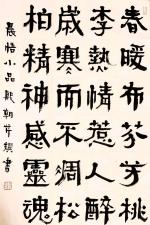 春暖布芬芳桃
李熱情惹人醉
歲寒而不凋松
柏精神感靈魂
晨悟小品 朝 撰書